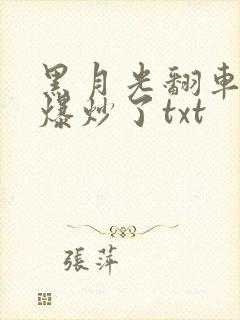 黑月光翻車
爆炒了txt
張萍